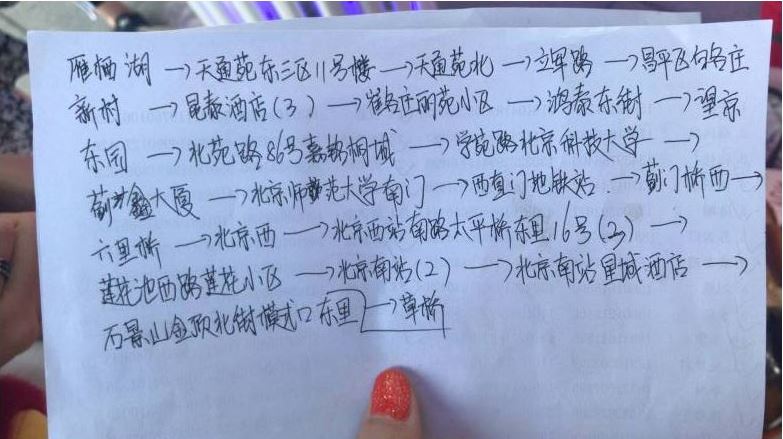 雁栖湖 → 天通苑东三区11号楼 → 天通苑北 → 立军路 → 昌平区白各庄
新村 → 昆泰酒店(3) → 崔各庄丽苑小区 → 鸿泰东街 → 望京
东园 → 北苑路86号嘉铭桐城 → 学苑路北京科技大学 →
蓟鑫大厦 → 北京师范大学南门 → 西直门地铁站 → 蓟门桥西 →
六里桥 → 北京西 → 北京西站南路太平桥东里16号(2) →
莲花池西路莲花小区 → 北京南站(2) → 北京南站星城酒店 →
石景山金顶北街模式口东里 → 草桥